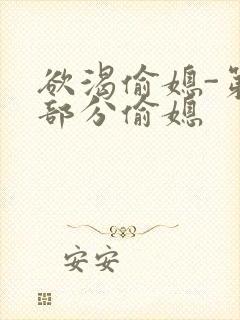 欲渴偷媳-第
部分偷媳
安安